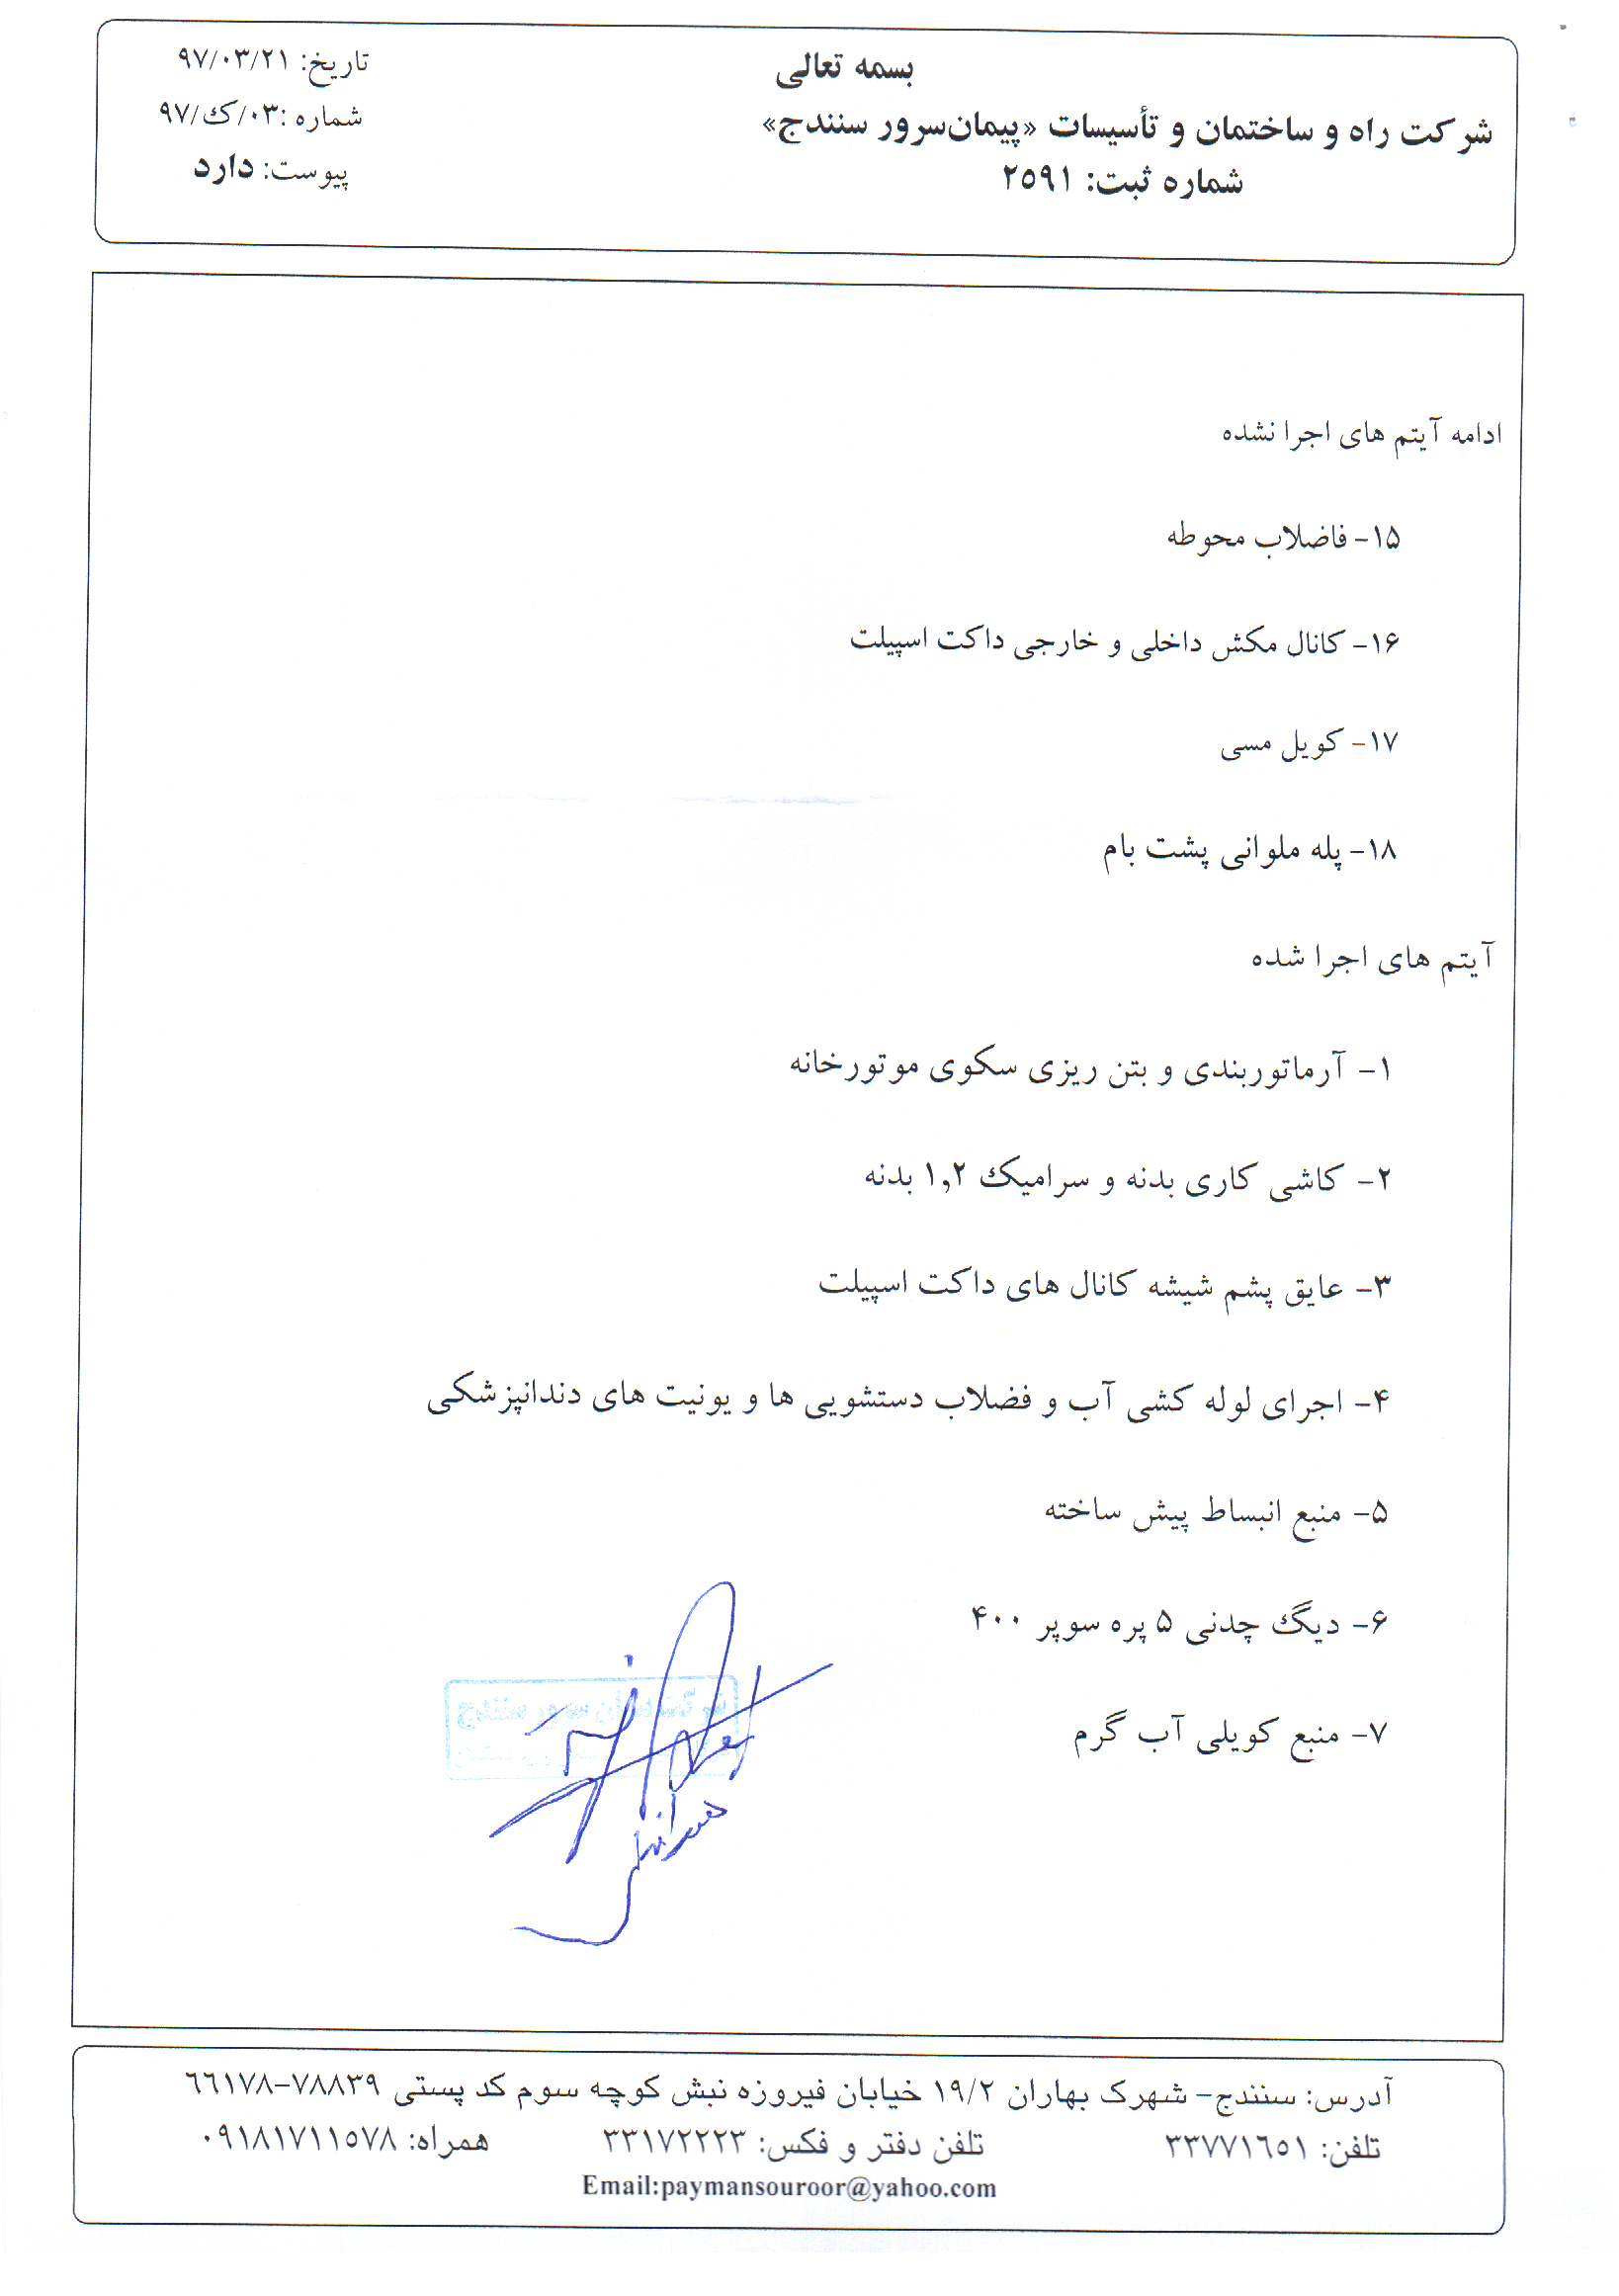 بسمه تعالی
شرکت راه و ساختمان و تأسیسات «پیمان‌سرور سنندج»
شماره ثبت: ۲۵۹۱
تاریخ: ۹۷/۰۳/۲۱
شماره :۰۳/ک/۹۷
پیوست: دارد
ادامه آیتم های اجرا نشده
۱۵- فاضلاب محوطه
۱۶- کانال مکش داخلی و خارجی داکت اسپیلت
۱۷- کویل مسی
۱۸- پله ملوانی پشت بام
آیتم های اجرا شده
۱- آرماتوربندی و بتن ریزی سکوی موتورخانه
۲- کاشی کاری بدنه و سرامیک ۱,۲ بدنه
۳- عایق پشم شیشه کانال های داکت اسپیلت
۴- اجرای لوله کشی آب و فضلاب دستشویی ها و یونیت های دندانپزشکی
۵- منبع انبساط پیش ساخته
۶- دیگ چدنی ۵ پره سوپر ۴۰۰
۷- منبع کویلی آب گرم
آدرس: سنندج- شهرک بهاران ۱۹/۲ خیابان فیروزه نبش کوچه سوم کد پستی ۷۸۸۳۹-۶۶۱۷۸
تلفن: ۳۳۷۷۱۶۵۱ تلفن دفتر و فکس: ۳۳۱۷۲۲۲۳ همراه: ۰۹۱۸۱۷۱۱۵۷۸
Email:paymansouroor@yahoo.com